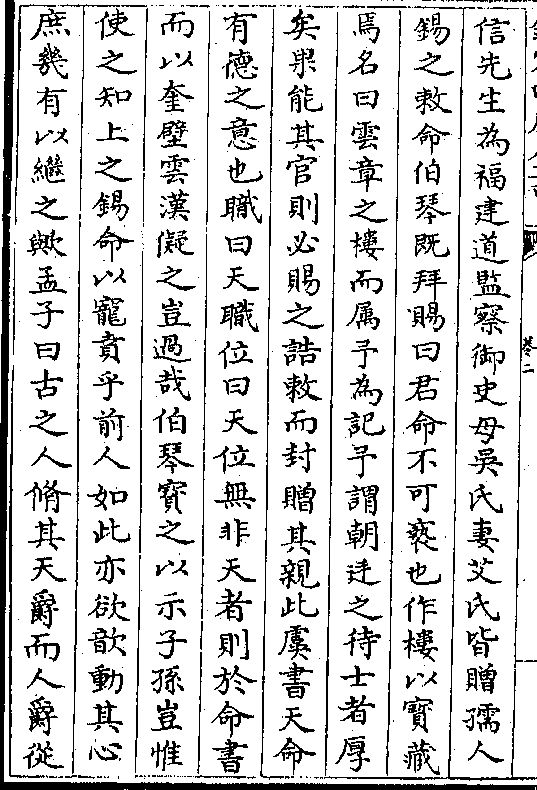 信先生為福建道監察御史母吳氏妻艾氏皆贈孺人
錫之敕命伯琴既拜賜曰君命不可褻也作樓以寶藏
焉名曰雲章之樓而属予為記予謂朝廷之待士者厚
矣果能其官則必賜之誥敕而封贈其親此虞書天命
有德之意也職曰天職位曰天位無非天者則於命書
而以奎壁雲漢儗之豈過哉伯琴寶之以示子孫豈惟
使之知上之錫命以寵賁乎前人如此亦欲歆動其心
庶幾有以繼之歟孟子曰古之人脩其天爵而人爵從
卷二